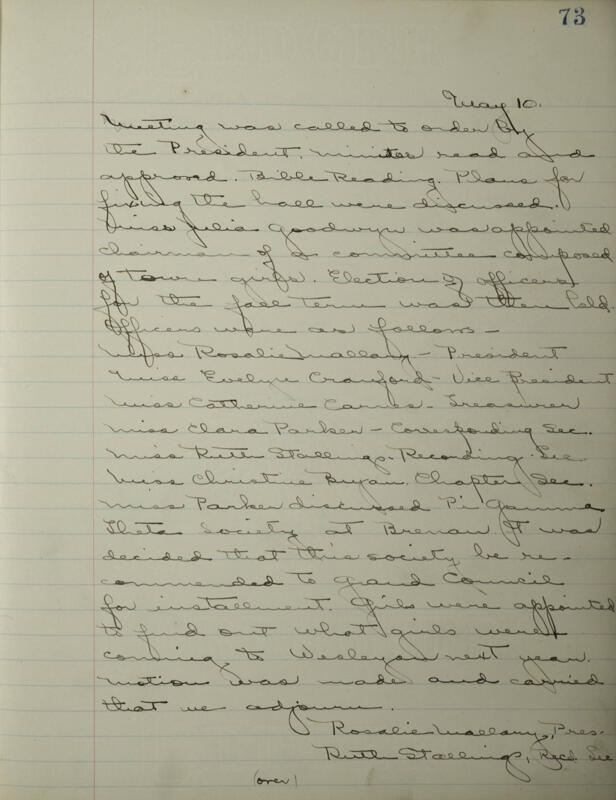 73
May 10.
Meeting was called to order by
the President, minutes read and
approved. Bible Reading. Plans for
fixing the hall were discussed.
Miss Julia Goodwyn was appointed
chairman of a committee composed
of town girls. Election of officers
for the fall term was then held.
Officers were as follows—
Miss Rosalie Mallary - President
Miss Evelyn Crawford - Vice President
Miss Catherine Carnes - Treasurer
Miss Clara Parker - Corresponding Sec.
Miss Ruth Stallings. Recording Sec.
Miss Christine Bryan. Chapter Sec.
Miss Parker discussed Pi Gamma
Theta society at Brenau. It was
decided that this society be re-
commended to Grand Council
for installment. Girls were appointed
to find out what girls were
coming to Wesleyan next year.
Motion was made and carried
that we adjourn.
Rosalie Mallary, Pres.
Ruth Stallings, Recd. Sec
(over)